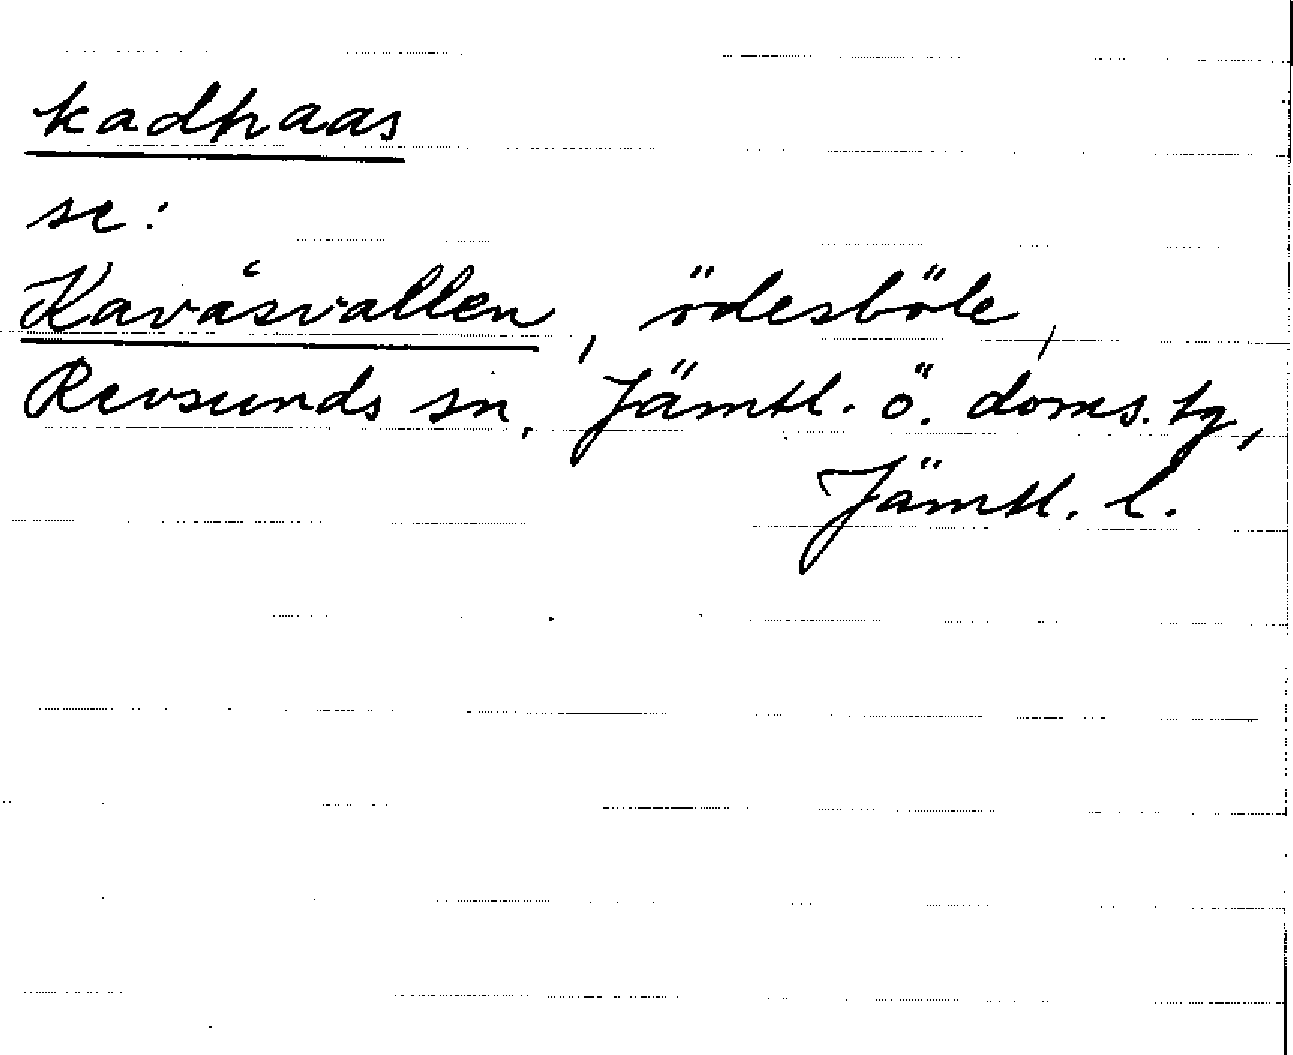 kadhaas
se:
Kavåsvallen, ödesböle,
Revsunds sn, Jämtl. ö. doms. tg,
Jämtl. l.